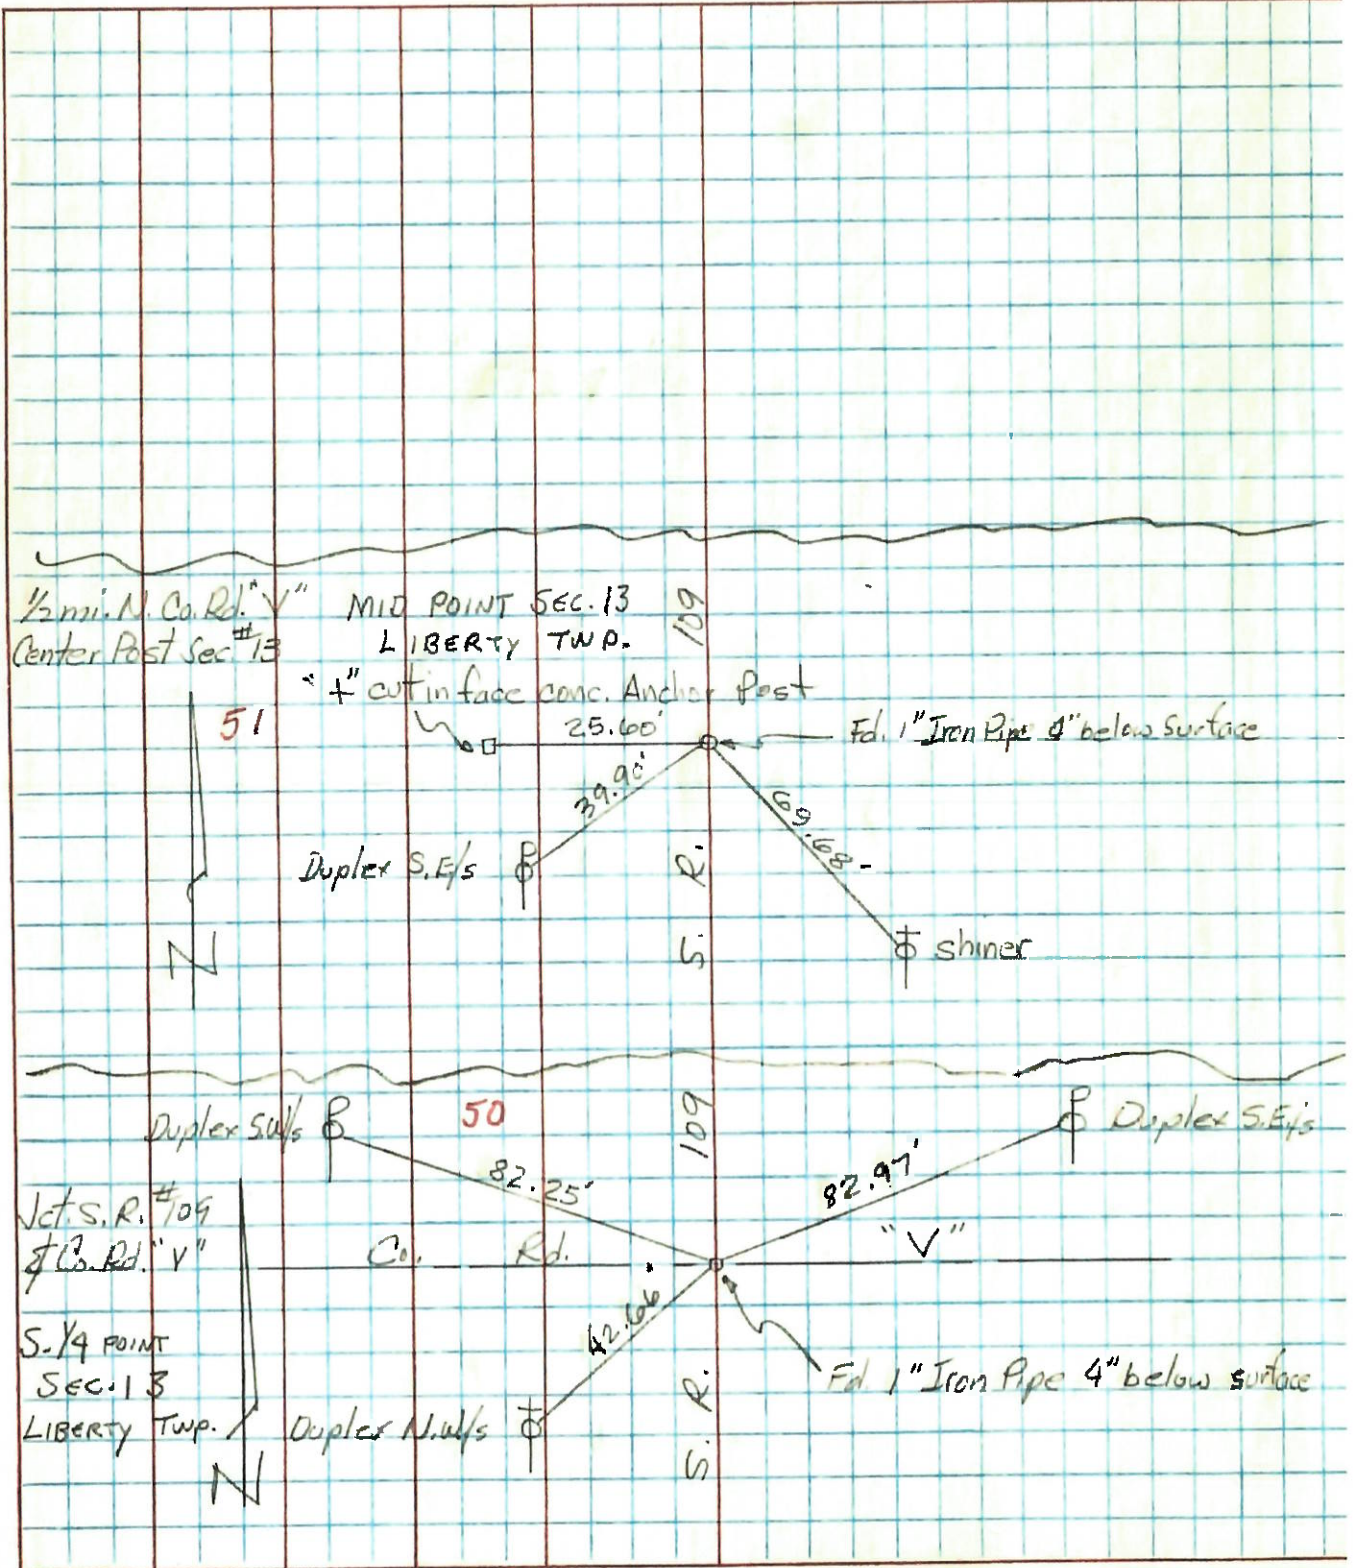 1/2 mi. N. Co. Rd. "V"
Center Post Sec. #13
MID POINT SEC. 13
LIBERTY TWP.
109
"+" cut in face conc. Anchor Post
51
25.60'
Fd. 1" Iron Pipe 4" below surface
39.90'
69.68
Duplex S.E/s
S. R.
shiner
N
Duplex S.W/s
50
109
Duplex S.E/s
82.25'
82.97'
Jct. S. R. #109
& Co. Rd. "V"
Co. Rd. "V"
42.66'
S. 1/4 POINT
SEC. 13
LIBERTY TWP.
Fd. 1" Iron Pipe 4" below surface
Duplex N.W/s
S. R.
N